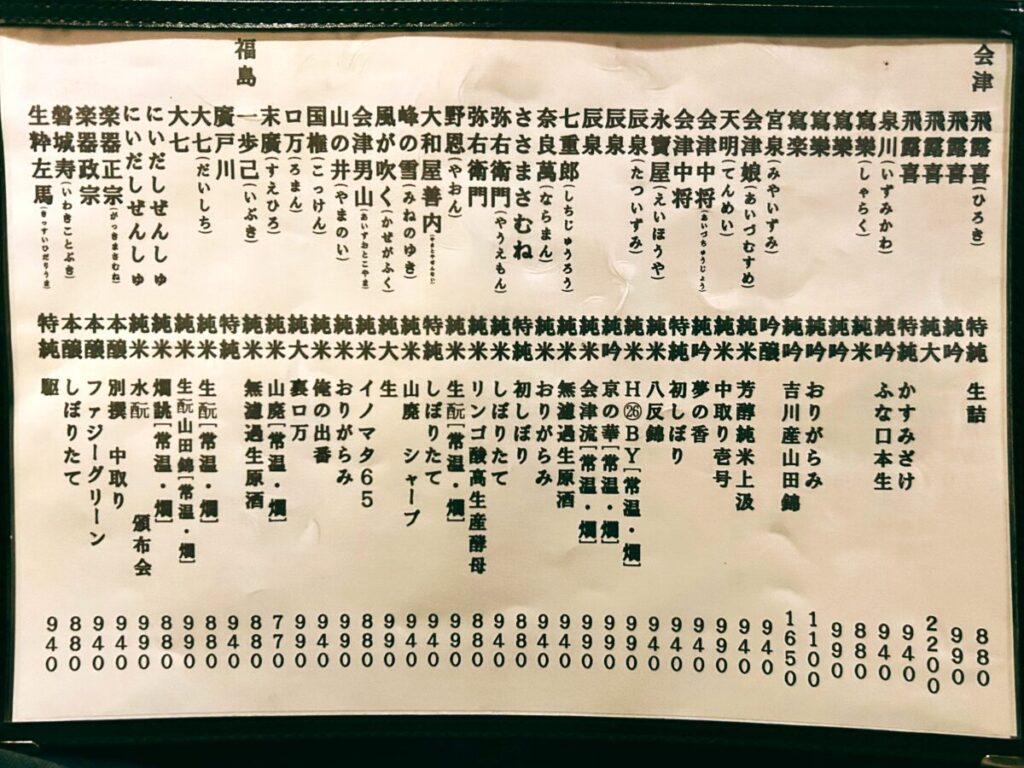 会津
飛露喜(ひろき) 特純 生詰 880
飛露喜 純吟 990
飛露喜 純大 2200
飛露喜 特純 かすみざけ 940
泉川(いずみかわ) 純吟 ふな口本生 940
寫樂(しゃらく) 純米 880
寫樂 純吟 990
寫樂 純吟 おりがらみ 1100
寫楽 純吟 吉川産山田錦 1650
宮泉(みやいずみ) 吟醸 940
会津娘(あいづむすめ) 純米 芳醇純米上汲 940
天明(てんめい) 純米 中取り壱号 990
会津中将(あいづちゅうじょう) 純吟 夢の香 940
会津中将 特純 初しぼり 940
永寶屋(えいほうや) 純米 八反錦 940
辰泉(たついずみ) 純米 H㉖BY[常温・燗] 990
辰泉 純吟 京の華[常温・燗] 990
辰泉 純米 会津流[常温・燗] 990
七重郎(しちじゅうろう) 純米 無濾過生原酒 940
奈良萬(ならまん) 純米 おりがらみ 940
ささまさむね 特純 初しぼり 880
弥右衛門(やうえもん) 純米 しぼりたて 940
弥右衛門 純米 リンゴ酸高生産酵母 880
野恩(やおん) 純米 生酛[常温・燗] 990
大和屋善内(やまとやぜんない) 特純 しぼりたて 940
峰の雪(みねのゆき) 純米 山廃 シャープ 940
風が吹く(かぜがふく) 純大 生 990
会津男山(あいずおとこやま) 純米 イノマタ65 880
山の井(やまのい) 純米 おりがらみ 990
国権(こっけん) 純米 俺の出番 940
ロ万(ろまん) 純大 裏ロ万 990
末廣(すえひろ) 純米 山廃[常温・燗] 770
福島
一歩己(いぶき) 純米 無濾過生原酒 880
廣戸川 特純 940
大七(だいしち) 純米 生酛[常温・燗] 880
大七 純米 生酛山田錦[常温・燗] 990
にいだしぜんしゅ 純米 燗誂[常温・燗] 880
にいだしぜんしゅ 純米 水酛 頒布会 990
楽器正宗(がっきまさむね) 本醸 別撰 中取り 940
楽器政宗 本醸 ファジーグリーン 940
磐城寿(いわきことぶき) 本醸 しぼりたて 880
生粋左馬(きっすいひだりうま) 特純 駆 940